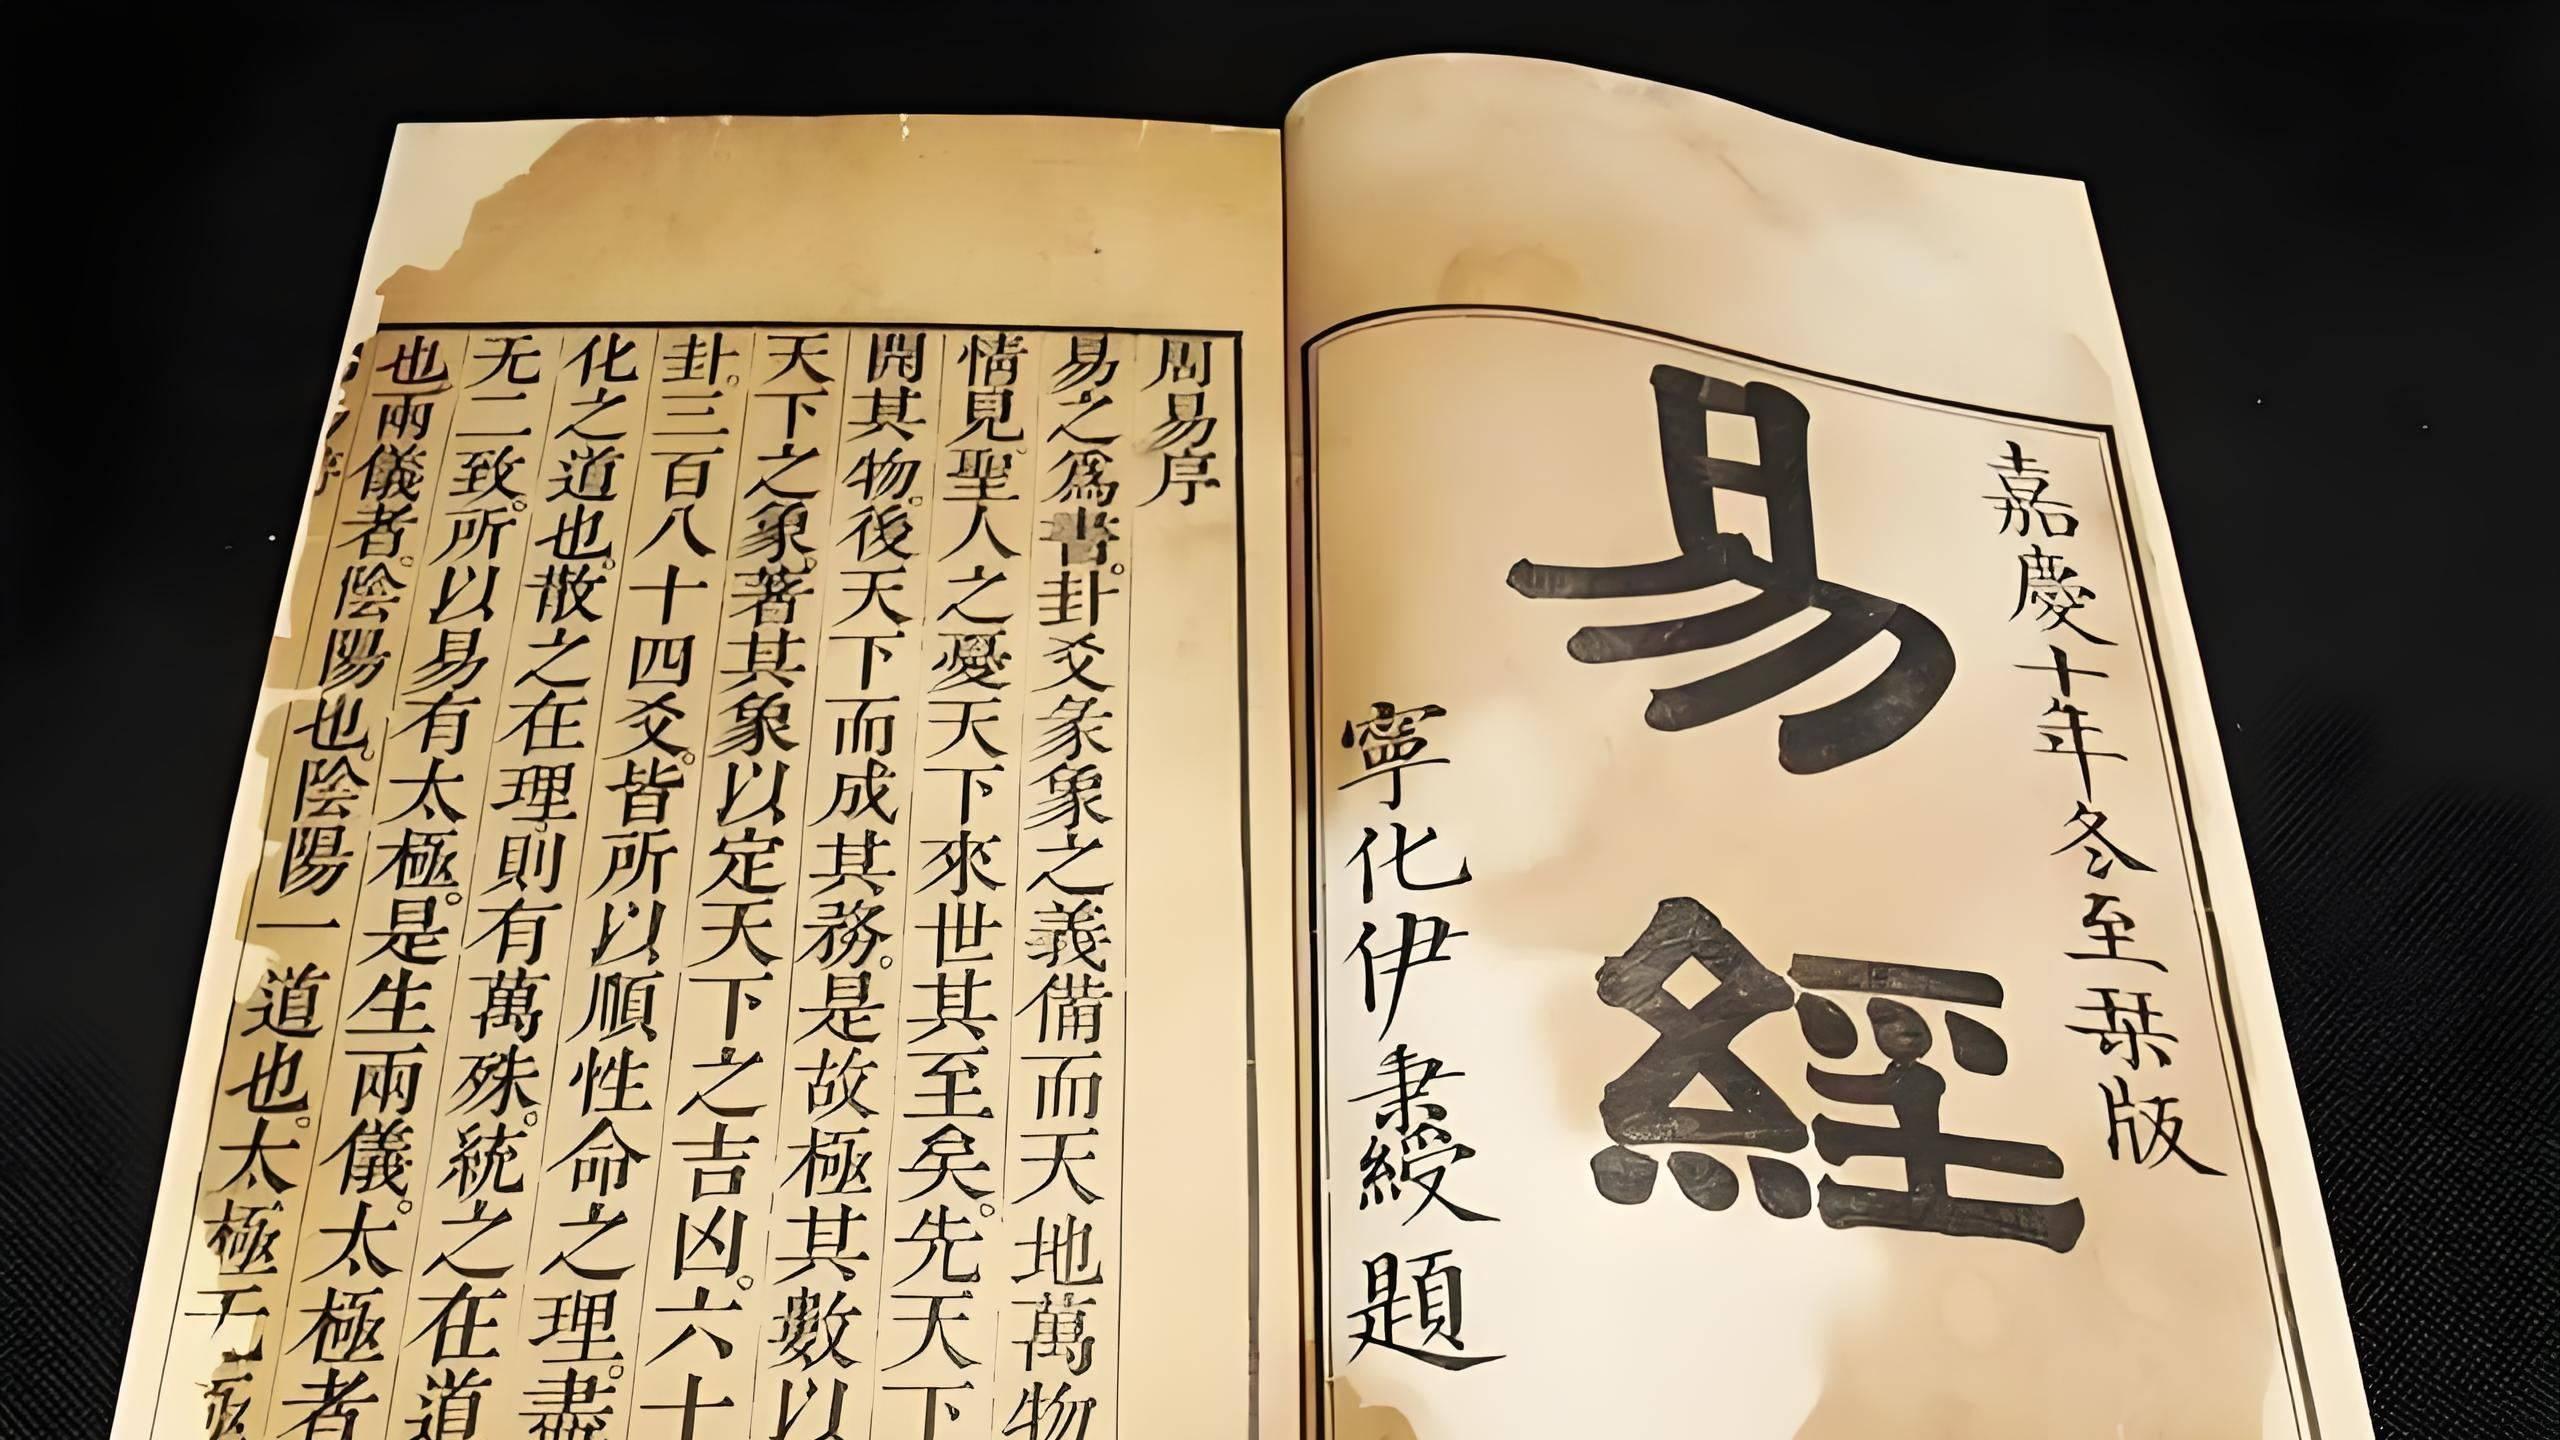 嘉慶十年冬至栞版
易經
寧化伊秉綬題
周易序
易之爲書。卦爻彖象之義備而天地萬物
情見。聖人之憂天下來世其至矣。先天下
開其物。後天下而成其務。是故極其數以
天下之象。著其象以定天下之吉凶。六十
卦。三百八十四爻。皆所以順性命之理。盡
化之道也。散之在理則有萬殊。統之在道
无二致。所以易有太極。是生兩儀。太極者
也兩儀者。陰陽也。陰陽一道也。太極无